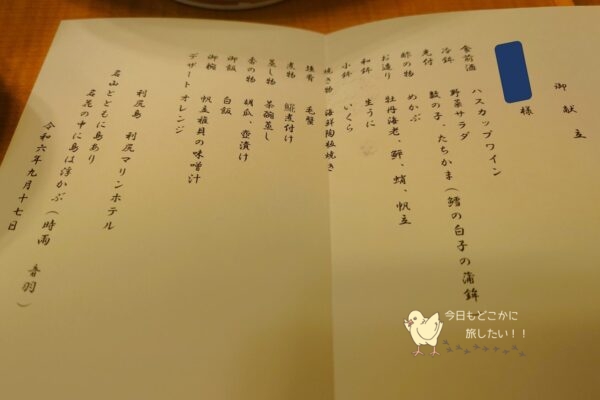 御献立
様
食前酒 ハスカップワイン
冷鉢 野菜サラダ
先付 数の子、たちかま(鱈の白子の蒲鉾
酢の物 めかぶ
お造り 牡丹海老、鮃、蛸、帆立
和鉢 生うに
小鉢 いくら
焼き物 海鮮陶板焼き
強肴 毛蟹
煮物 鰈煮付け
蒸し物 茶碗蒸し
香の物 胡瓜、壺漬け
御飯 白飯
御椀 帆立稚貝の味噌汁
デザート オレンジ
利尻島 利尻マリンホテル
名山とともに島あり
名花の中に島は浮かぶ(時雨 音羽)
令和六年九月十七日
今日もどこかに
旅したい!!